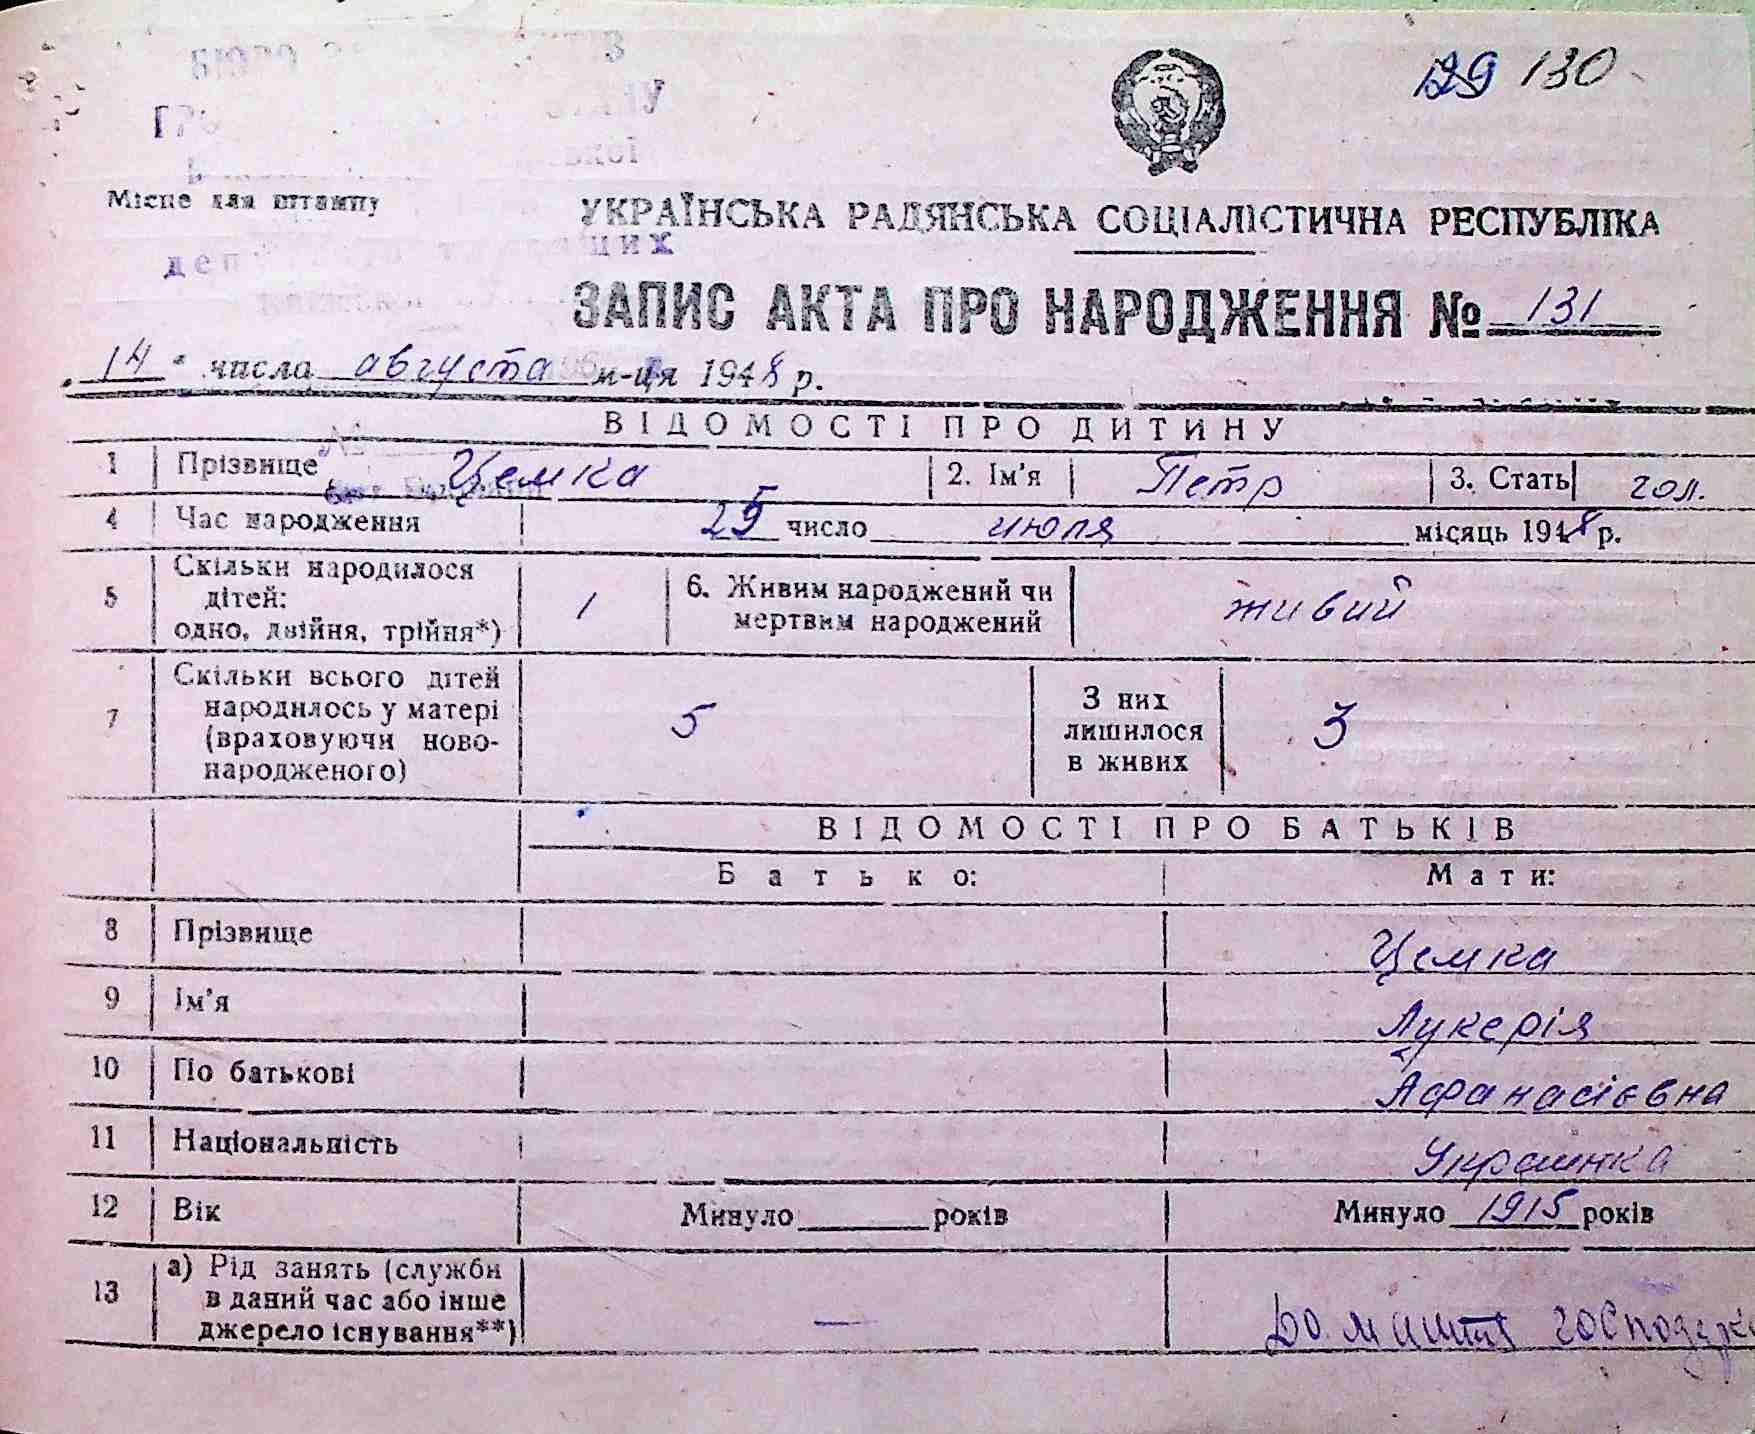 БЮРО
129 130
Місце для штампу
УКРАЇНСЬКА РАДЯНСЬКА СОЦІАЛІСТИЧНА РЕСПУБЛІКА
ЗАПИС АКТА ПРО НАРОДЖЕННЯ № 131
„14" числа августа м-ця 1948 р.
ВІДОМОСТІ ПРО ДИТИНУ
1 Прізвище Цемка 2. Ім'я Петр 3. Стать чол.
4 Час народження 25 число июля місяць 1948 р.
5 Скільки народилося дітей: одно, двійня, трійня*) 1 6. Живим народжений чи мертвим народжений живий
7 Скільки всього дітей народилось у матері (враховуючи ново-народженого) 5 З них лишилося в живих 3
ВІДОМОСТІ ПРО БАТЬКІВ
Батько: Мати:
8 Прізвище Цемка
9 Ім'я Лукерія
10 По батькові Афанасієвна
11 Національність Украинка
12 Вік Минуло років Минуло 1915 років
13 а) Рід занять (служби в даний час або інше джерело існування**) —